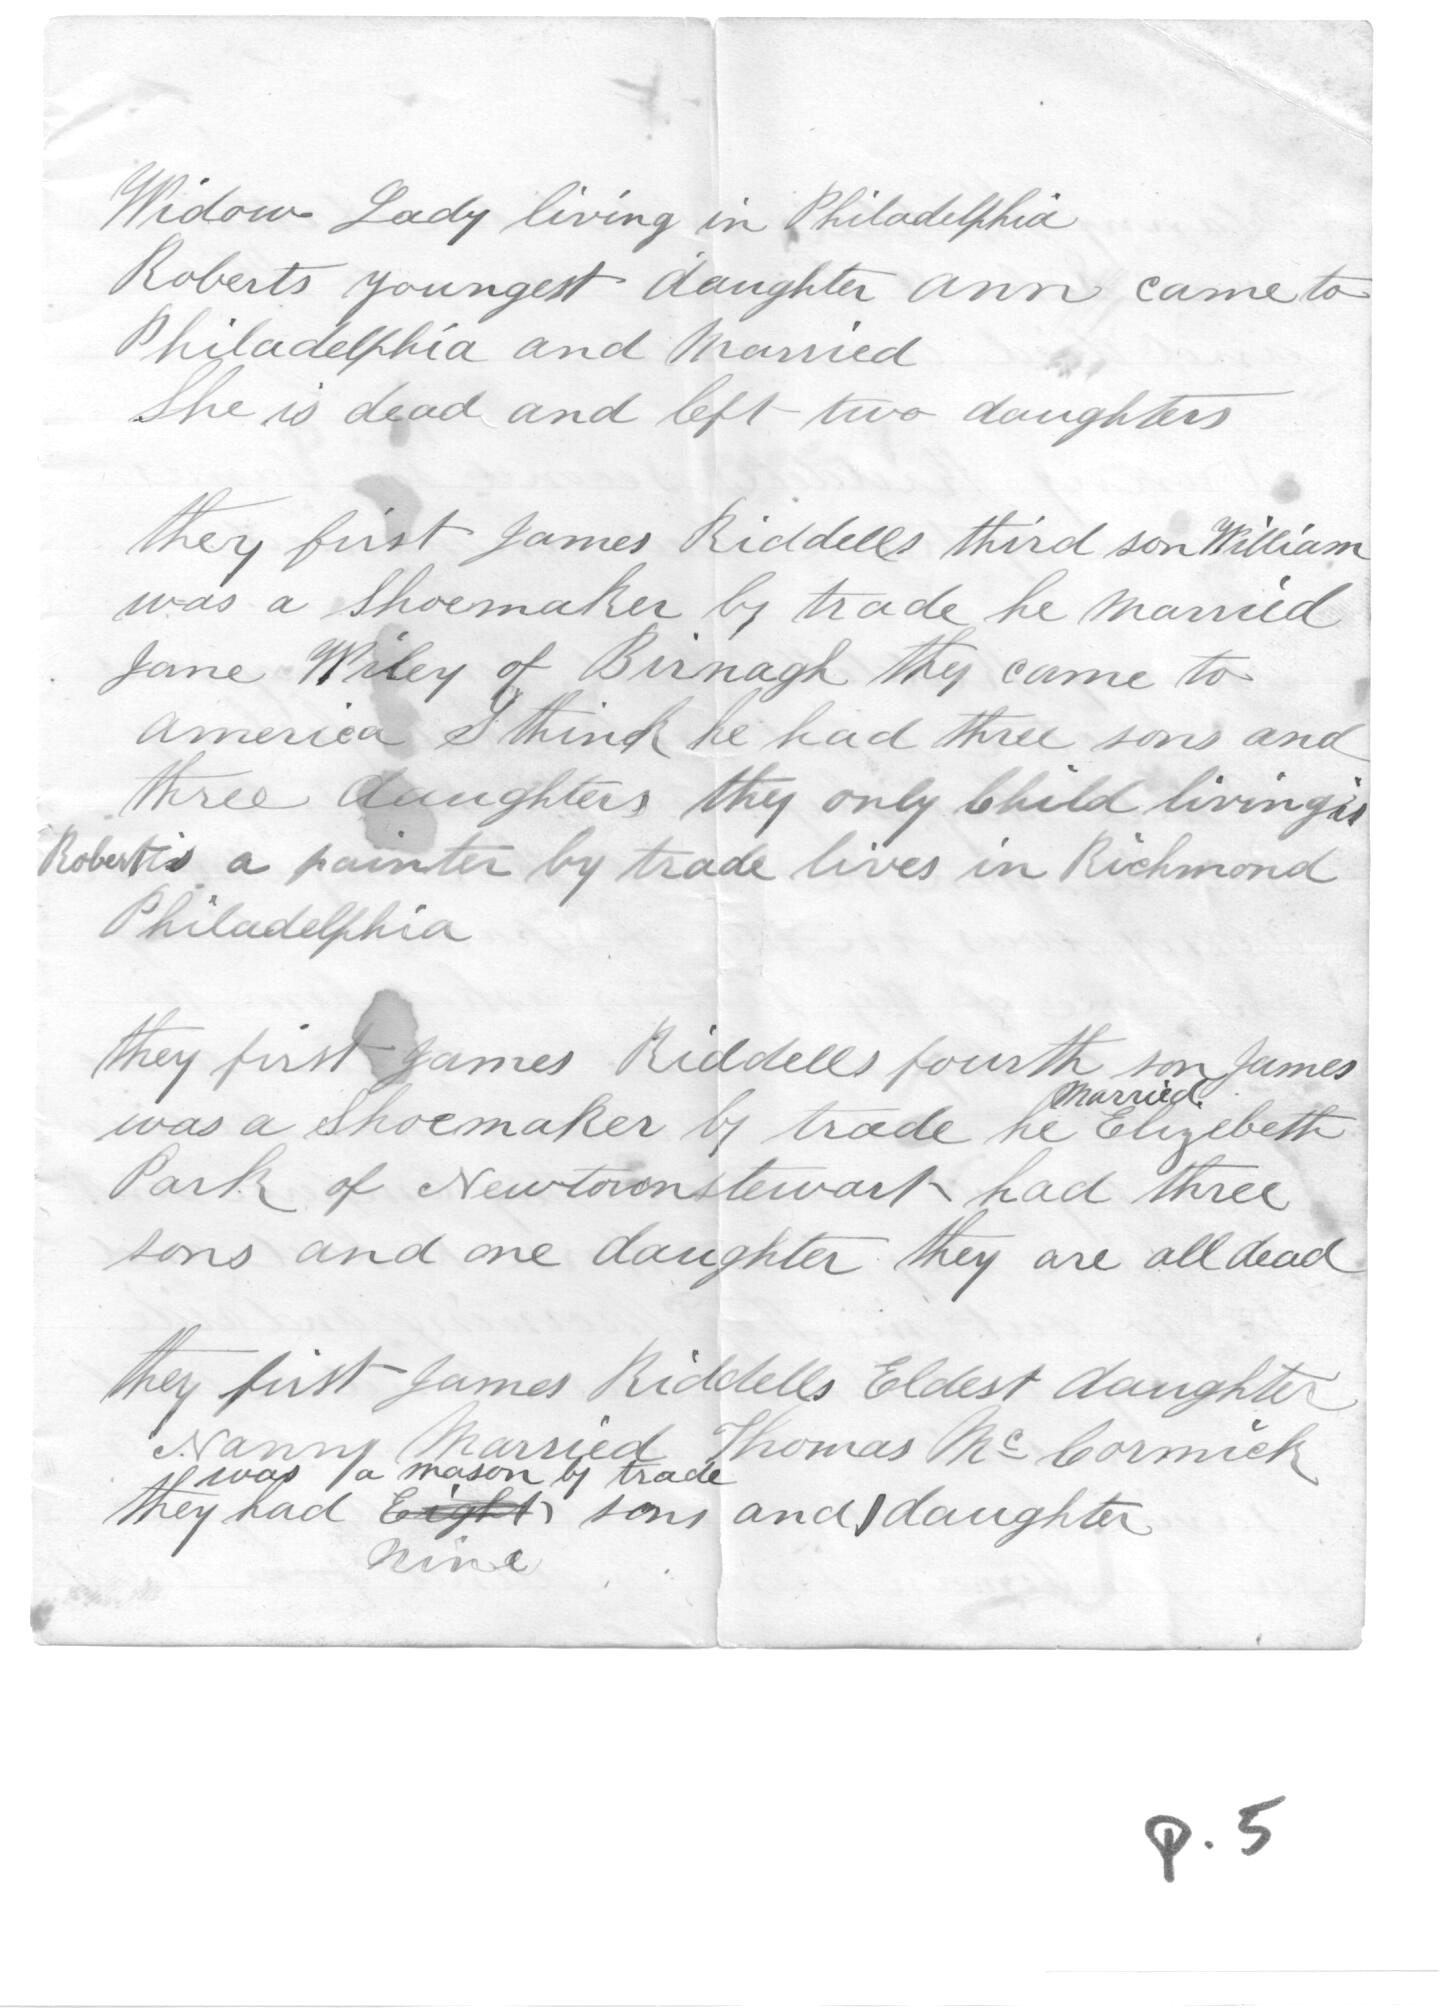 Widow Lady living in Philadelphia
Roberts youngest daughter ann came to
Philadelphia and Married
She is dead and left two daughters
they first James Riddells third son William
was a Shoemaker by trade he married
Jane Wiley of Birnagh they came to
america I think he had three sons and
three daughters they only Child living is
Robert is a painter by trade lives in Richmond
Philadelphia
they first James Riddells fourth son James
married
was a Shoemaker by trade he Elizebeth
Park of Newtownstewart had three
sons and one daughter they are all dead
they first James Riddells Eldest daughter
Nanny Married Thomas Mc Cormick
was a mason by trade
they had Eight sons and 1 daughter
Nine
p. 5